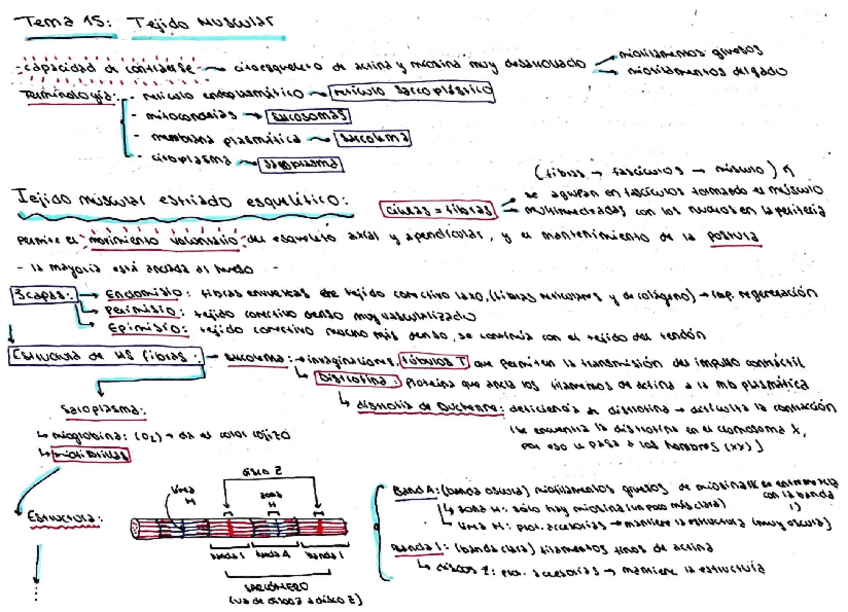 Tema 15: Tejido Muscular
- capacidad de contraerse → citoesqueleto de actina y miosina muy desarrollado → miofilamentos gruesos
→ miofilamentos delgado
Terminología: - retículo endoplasmático → retículo sarcoplásmico
- mitocondrias → sarcosomas
- membrana plasmática → sarcolema
- citoplasma → sarcoplasma
(fibras → fascículos → músculo)
Tejido muscular estriado esquelético: células = fibras → se agrupan en fascículos formando el músculo
→ multinucleadas con los núcleos en la periferia
permite el movimiento voluntario del esqueleto axial y apendicular, y el mantenimiento de la postura
- la mayoría está anclada al hueso -
3 capas: → Endomisio: fibras envueltas de tejido conectivo laxo, (fibras reticulares y de colágeno) → imp. regeneración
→ Perimisio: tejido conectivo denso muy vascularizado
→ Epimisio: tejido conectivo mucho más denso, se continúa con el tejido del tendón
Estructura de las fibras: → sarcolema: → invaginaciones, túbulos T que permiten la transmisión del impulso contráctil
↳ Distrofina: proteína que ancla los filamentos de actina a la mb plasmática
↳ distrofia de Duchenne: deficiencia de distrofina → dificulta la contracción
(se encuentra la distrofina en el cromosoma X,
por eso le pasa a los hombres (xx))
Sarcoplasma:
↳ mioglobina: (O2) → da el color rojizo
↳ miofibrillas
Estructura:
disco Z
línea H
zona H
banda I banda A banda I
SARCÓMERO
(va de disco Z a disco Z)
Banda A: (banda oscura) miofilamentos gruesos de miosina con la banda I)
↳ zona H: sólo hay miosina (un poco más clara)
↳ línea H: prot. accesorias → mantiene la estructura (muy oscura)
Banda I: (banda clara) filamentos finos de actina
↳ discos Z: prot. accesorias → mantiene la estructura